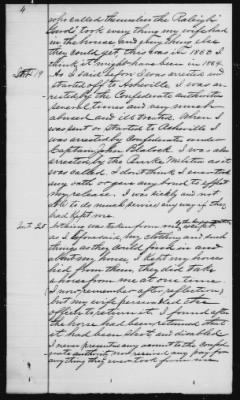 4
who called themselves the Raleigh
Guards, took every thing my wife had
in the house and every thing else
they could get this was in 1863 I
think it might have been in 1864.
Int 19 As I said before I was arrested and
started off to Asheville I was arr
ested by the Confederate authorities
several times and very much
abused and ill treated. When I
was sent or started to Asheville I
was arrested by Confederates under
Captain John I was also
arrested by the Burke Militia as it
was called. I dont think I ever took
any oath or gave any bond to effect
my release. I was sickly and not
able to do much service any way if they
had kept me.
Int 25 Nothing was taken from me except
as I before said, my clothing and such
things as they could find in and
about my house, I kept my horses
hid from them, they did take
a horse from me at one time
(I now remember after reflection)
but my wife persuaded the
officers to return it. I found after
the horse had been returned that
it had been shot and disabled
I never presented any account to the confed-
erate authority nor received any pay for
any thing they ever took from me